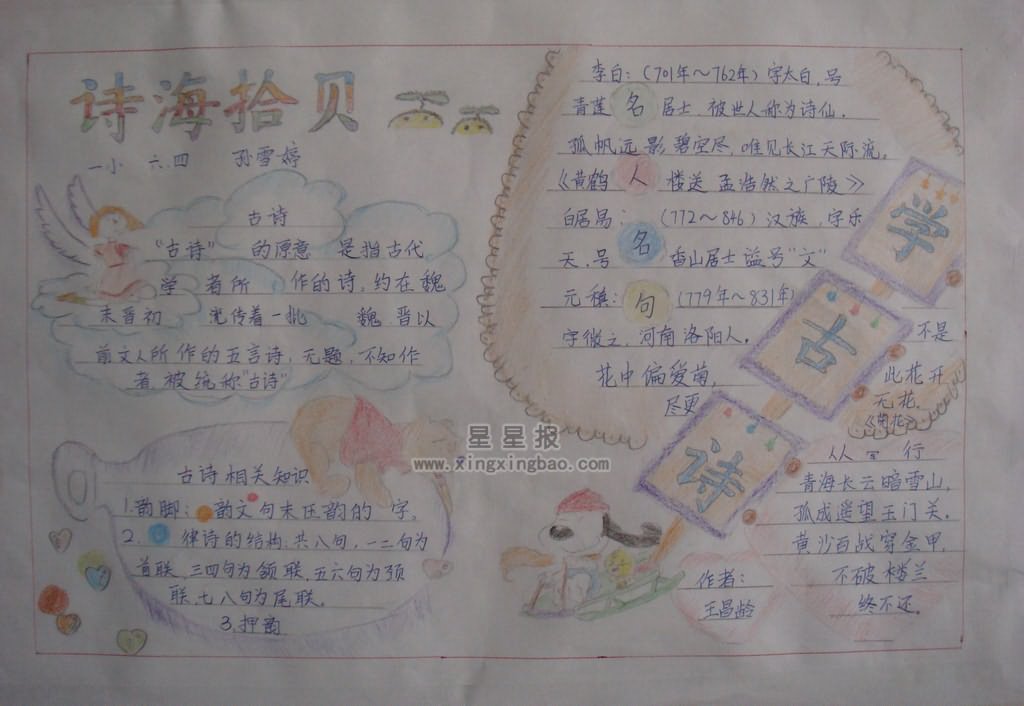 诗海拾贝
一小 六.四 孙雪婷
古诗
“古诗” 的原意 是指古代
学者所 作的诗,约在魏
末晋初 流传着一批 魏.晋以
前文人所作的五言诗,无题,不知作
者,被统称“古诗”
古诗相关知识
1.韵脚: 韵文句末压韵的字.
2. 律诗的结构:共八句,一二句为
首联,三四句为颔联,五六句为颈
联,七八句为尾联.
3.押韵
李白:(701年~762年)字太白,号
青莲居士,被世人称为诗仙.
孤帆远影碧空尽,唯见长江天际流。
《黄鹤楼送孟浩然之广陵》
白居易: (772~846)汉族,字乐
天,号 香山居士谥号“文”
元稹: (779年~831年)
字微之,河南洛阳人。
花中偏爱菊,
尽更
不是
此花开
无花.
《菊花》
名
人
名
句
学
古
诗
从 行
青海长云暗雪山,
孤城遥望玉门关.
黄沙百战穿金甲,
不破楼兰
终不还.
作者:
王昌龄
星星报
www.xingxingbao.com